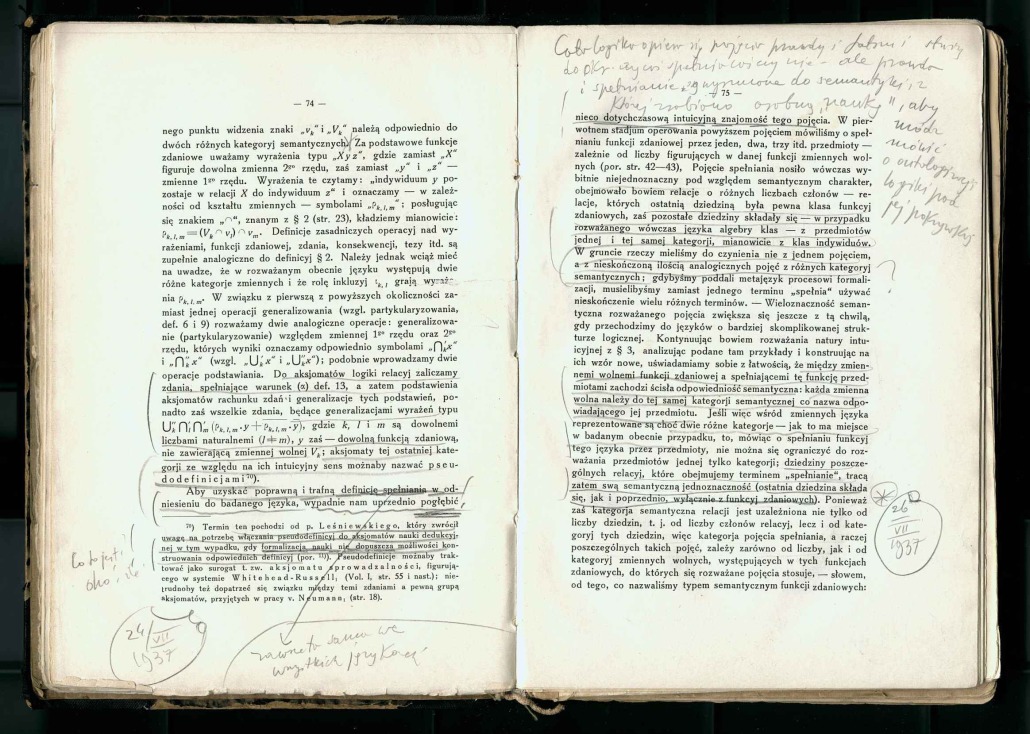 — 74 —
nego punktu widzenia znaki „vₖ" i „Vₖ" należą odpowiednio do
dwóch różnych kategoryj semantycznych. Za podstawowe funkcje
zdaniowe uważamy wyrażenia typu „Xyz", gdzie zamiast „X"
figuruje dowolna zmienna 2go rzędu, zaś zamiast „y" i „z" —
zmienne 1go rzędu. Wyrażenia te czytamy: „indywiduum y po-
zostaje w relacji X do indywiduum z" i oznaczamy — w zależ-
ności od kształtu zmiennych — symbolami „ρk, l, m"; posługując
się znakiem „⌒", znanym z § 2 (str. 23), kładziemy mianowicie:
ρk, l, m = (Vk ⌒ vl) ⌒ vm. Definicje zasadniczych operacyj nad wy-
rażeniami, funkcji zdaniowej, zdania, konsekwencji, tezy itd. są
zupełnie analogiczne do definicyj § 2. Należy jednak wciąż mieć
na uwadze, że w rozważanym obecnie języku występują dwie
różne kategorje zmiennych i że rolę inkluzyj ιk, l grają wyraże-
nia ρk, l, m. W związku z pierwszą z powyższych okoliczności za-
miast jednej operacji generalizowania (wzgl. partykularyzowania,
def. 6 i 9) rozważamy dwie analogiczne operacje: generalizowa-
nie (partykularyzowanie) względem zmiennej 1go rzędu oraz 2go
rzędu, których wyniki oznaczamy odpowiednio symbolami „⋂'k x"
i „⋂''k x" (wzgl. „⋃'k x" i „⋃''k x"); podobnie wprowadzamy dwie
operacje podstawiania. Do aksjomatów logiki relacyj zaliczamy
zdania, spełniające warunek (α) def. 13, a zatem podstawienia
aksjomatów rachunku zdań i generalizacje tych podstawień, po-
nadto zaś wszelkie zdania, będące generalizacjami wyrażeń typu
⋃''k ⋂'l ⋂'m (ρk, l, m . y + ρk, l, m . y), gdzie k, l i m są dowolnemi
liczbami naturalnemi (l ≠ m), y zaś — dowolną funkcją zdaniową,
nie zawierającą zmiennej wolnej Vk; aksjomaty tej ostatniej kate-
gorji ze względu na ich intuicyjny sens możnaby nazwać pseu-
dodefinicjami⁷⁰).
Aby uzyskać poprawną i trafną definicję spełniania w od-
niesieniu do badanego języka, wypadnie nam uprzednio pogłębić
⁷⁰) Termin ten pochodzi od p. Leśniewskiego, który zwrócił
uwagę na potrzebę włączania pseudodefinicyj do aksjomatów nauki dedukcyj-
nej w tym wypadku, gdy formalizacja nauki nie dopuszcza możliwości kon-
struowania odpowiednich definicyj (por. ). Pseudodefinicje możnaby trak-
tować jako surogat t. zw. aksjomatu sprowadzalności, figurują-
cego w systemie Whitehead-Russell, (Vol. I, str. 55 i nast.); nie-
trudnoby też dopatrzeć się związku między temi zdaniami a pewną grupą
aksjomatów, przyjętych w pracy v. Neumann, (str. 18).
Co to jest?
24/VII
1937
zawsze to samo we
wszystkich językach
Cała logika opiera się pojęciu prawdy i
ale prawda
i spełnianie są wyrzucone do semantyki, z
której zrobiono osobną „naukę", aby
módz
mówić
o ontologji
logiki pod
jej pokrywką
— 75 —
nieco dotychczasową intuicyjną znajomość tego pojęcia. W pier-
wotnem stadjum operowania powyższem pojęciem mówiliśmy o speł-
nianiu funkcji zdaniowej przez jeden, dwa, trzy itd. przedmioty —
zależnie od liczby figurujących w danej funkcji zmiennych wol-
nych (por. str. 42—43), Pojęcie spełniania nosiło wówczas wy-
bitnie niejednoznaczny pod względem semantycznym charakter,
obejmowało bowiem relacje o różnych liczbach członów — re-
lacje, których ostatnią dziedziną była pewna klasa funkcyj
zdaniowych, zaś pozostałe dziedziny składały się — w przypadku
rozważanego wówczas języka algebry klas — z przedmiotów
jednej i tej samej kategorji, mianowicie z klas indywiduów.
W gruncie rzeczy mieliśmy do czynienia nie z jednem pojęciem,
a z nieskończoną ilością analogicznych pojęć z różnych kategoryj
semantycznych; gdybyśmy poddali metajęzyk procesowi formali-
zacji, musielibyśmy zamiast jednego terminu „spełnia" używać
nieskończenie wielu różnych terminów. — Wieloznaczność seman-
tyczna rozważanego pojęcia zwiększa się jeszcze z tą chwilą,
gdy przechodzimy do języków o bardziej skomplikowanej struk-
turze logicznej. Kontynuując bowiem rozważania natury intu-
icyjnej z § 3, analizując podane tam przykłady i konstruując na
ich wzór nowe, uświadamiamy sobie z łatwością, że między zmien-
nemi wolnemi funkcji zdaniowej a spełniającemi tę funkcję przed-
miotami zachodzi ścisła odpowiedniość semantyczna: każda zmienna
wolna należy do tej samej kategorji semantycznej co nazwa odpo-
wiadającego jej przedmiotu. Jeśli więc wśród zmiennych języka
reprezentowane są choć dwie różne kategorje — jak to ma miejsce
w badanym obecnie przypadku, to, mówiąc o spełnianiu funkcyj
tego języka przez przedmioty, nie można się ograniczyć do roz-
ważania przedmiotów jednej tylko kategorji; dziedziny poszcze-
gólnych relacyj, które obejmujemy terminem „spełnianie", tracą
zatem swą semantyczną jednoznaczność (ostatnia dziedzina składa
się, jak i poprzednio, wyłącznie z funkcyj zdaniowych). Ponieważ
zaś kategorja semantyczna relacji jest uzależniona nie tylko od
liczby dziedzin, t. j. od liczby członów relacyj, lecz i od kate-
gorji tych dziedzin, więc kategorja pojęcia spełniania, a raczej
poszczególnych takich pojęć, zależy zarówno od liczby, jak i od
kategoryj zmiennych wolnych, występujących w tych funkcjach
zdaniowych, do których się rozważane pojęcia stosuje, — słowem,
od tego, co nazwaliśmy typem semantycznym funkcyj zdaniowych:
?
26
VII
1937